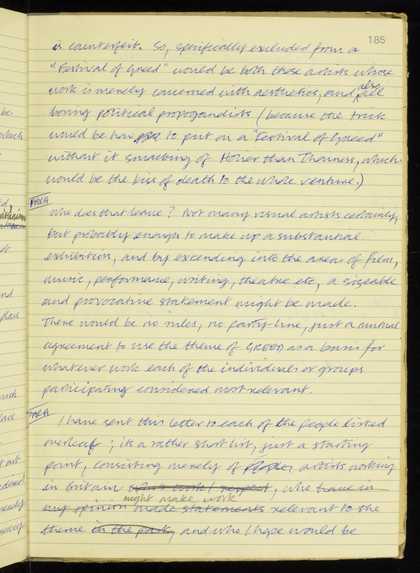 185
is counterfeit. So, specifically excluded from a
"Festival of Greed" would be both those artists whose
work is merely concerned with aesthetics, and also all
boring political propagandists (because the trick
would be how to put on a "Festival of Greed"
without it smacking of Holier than Thouness, which
would be the kiss of death to the whole venture.)
Who does that leave? Not many visual artists certainly,
but probably enough to make up a substantial
exhibition, and by extending into the areas of film,
music, performance, writing, theatre etc, a sizeable
and provocative statement might be made.
There would be no rules, no party-line, just a mutual
agreement to use the theme of GREED as a basis for
whatever work each of the individuals or groups
participating considered most relevant.
I have sent this letter to each of the people listed
overleaf; its a rather short list, just a starting
point, consisting merely of artists working
in Britain whose work I respect, who have in
might make work
any opinion made statements relevant to the
theme in the past, and who I hope would be